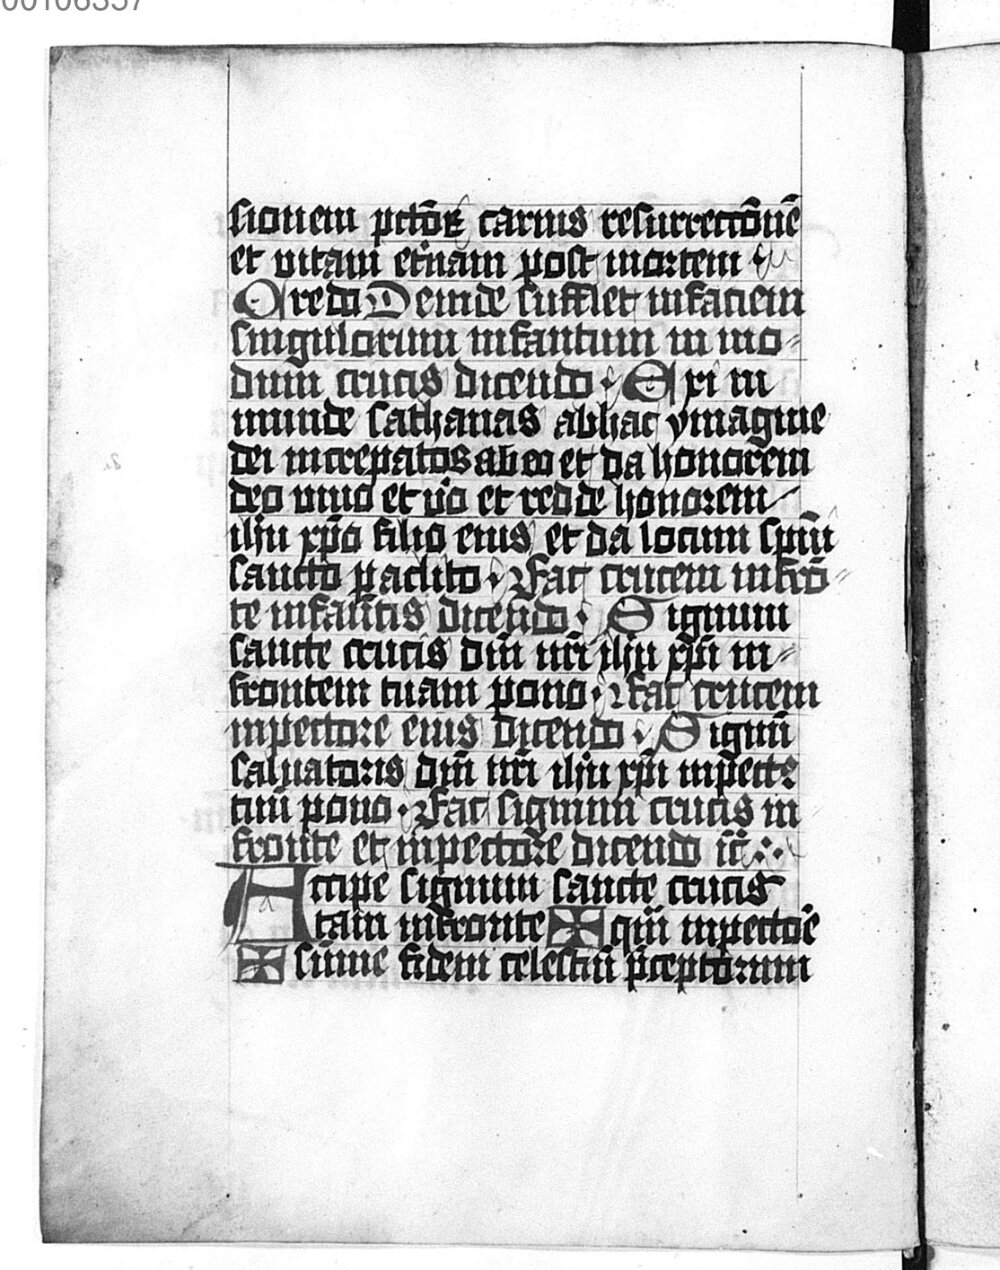 00106357
sionem pctōꝝ carnis resurrectōnē
et vitam et̓nam post mortem
Credo Deinde sufflet infaciem
singulorum infantum in mo⸗
dum crucis dicendo · Exi in
munde sathanas abhac ymagine
dei increpatos abeo et da honorem
deo viuo et v̓o et redde honorem
ihū xp̄o filio eius et da locum spūi
sancto paclito · Fac crucem infrō⸗
te infantis dicendo · Signum
sancte crucis dn̄i nr̄i ihū xp̄i in⸗
frontem tuam pono · Fac crucem
inpectore eius dicendo · Signū
saluatoris dn̄i nr̄i ihū xp̄i inpecte
tuū pono · Fac signum crucis in
fronte et inpectore dicendo
Accipe signum sancte crucis
tam infronte ✠ qm̄ inpectoē
✠ sume fidem celestiū p̄ceptorum